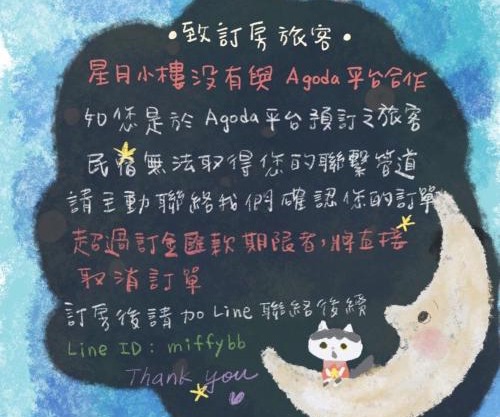 •致訂房旅客•
星月小樓沒有與 Agoda平台合作
如您是於 Agoda平台預訂之旅客
民宿無法取得您的聯繫管道
請主動聯絡我們確認您的訂單
超過訂金匯款期限者,將直接
取消訂單
訂房後請加 Line 聯絡後續
Line ID : miffybb
Thank you